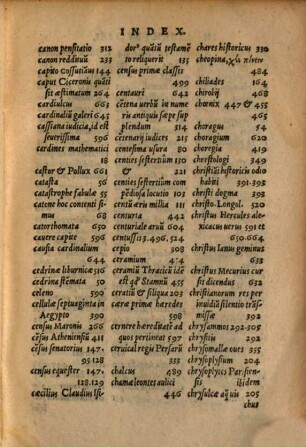 INDEX.
canon pensitatio 312
canon redditus 233
capito Cossutianus 144
caput Ciceronis quanti
sit æstimatum 264
cardiculus 663
cardinalis galeri 645
cassiana iudicia, id est
seuerissima 596
cardines mathematici
18
castor & Pollux 661
catasta 56
catastrophe fabulæ 55
catene hoc contenti si-
mus 68
catorthomata 650
cauere capite 596
causia cardinalium
644
cedrinæ liburnicæ 516
cedrina stemata 50
celeno 590
cellulæ septuaginta in
Aegypto 390
census Maronis 266
cẽsus Atheniensiũ 411
cẽsus senatorius 147.
95.128
census equester 147.
128.129
cæcilius Claudius Isi-
dorꝰ quãtũ testamẽ
to reliquerit 135
census primæ classis
137
centauri 642
cẽtena uerbũ in nume
ris antiquis sæpe sup
plendum 314
cẽternarij iudices 21
centesima usura 80
centies sestertium 130
& 21
centies sestertium com
pẽdiosa locutio 105
centũ aureũ millia 111
centuria 442
centuriale aruũ 604
centussis 5.496, 524
cepio 308
ceramium 4
ceramiũ Thracicũ idẽ
est qđ Stamnũ 455
ceratiũ Cf siliqua 205
caræ primæ hæredes
27
cernere hæreditatẽ ad
quos pertineat 597
ceruical regis Persarũ
313
chalcus 205
chamæleontes aulici
446
chares historicus 330
cheopina, χῶ πίνειν
484
chiliades 164
chirobij 468
chœnix 447 & 455
465
choragus 54
choragium 620
choregia 419
chrestologi 349
christiani historici odio
habiti 391.393
christi dogma 398
christo. Longol. 520
christus Hercules ale-
xicacus uerus 591 et
650.664
christus Ianus geminus
633
christus Mercurius cur
sit dicendus 632
christianorum res per
inuidiã silentio trãs-
missæ 390
chrysammos 292-305
chrysitis 292
chrysomallæ oues 335
chrysoplysium 204
chrysoplytes Parisien-
sis ibidem
chrysulcæ aquis 205
chus